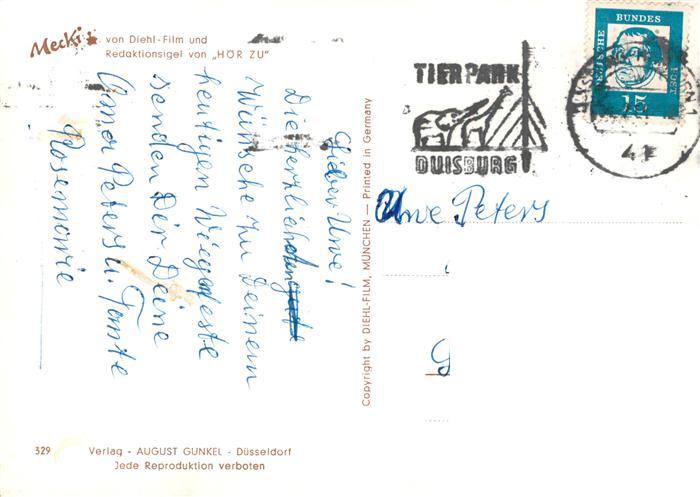 Mecki von Diehl-Film und
Redaktionsigel von „HÖR ZU"
Lieber Uwe!
Die herzlichsten
Wünsche zu Deinem
heutigen Wiegenfeste
senden Dir Deine
Oma Peters u. Tante
Rosemarie
329
Verlag - AUGUST GUNKEL - Düsseldorf
Jede Reproduktion verboten
Copyright by DIEHL-FILM, MÜNCHEN — Printed in Germany
TIERPARK
DUISBURG
DEUTSCHE BUNDESPOST
15
Uwe Peters
G